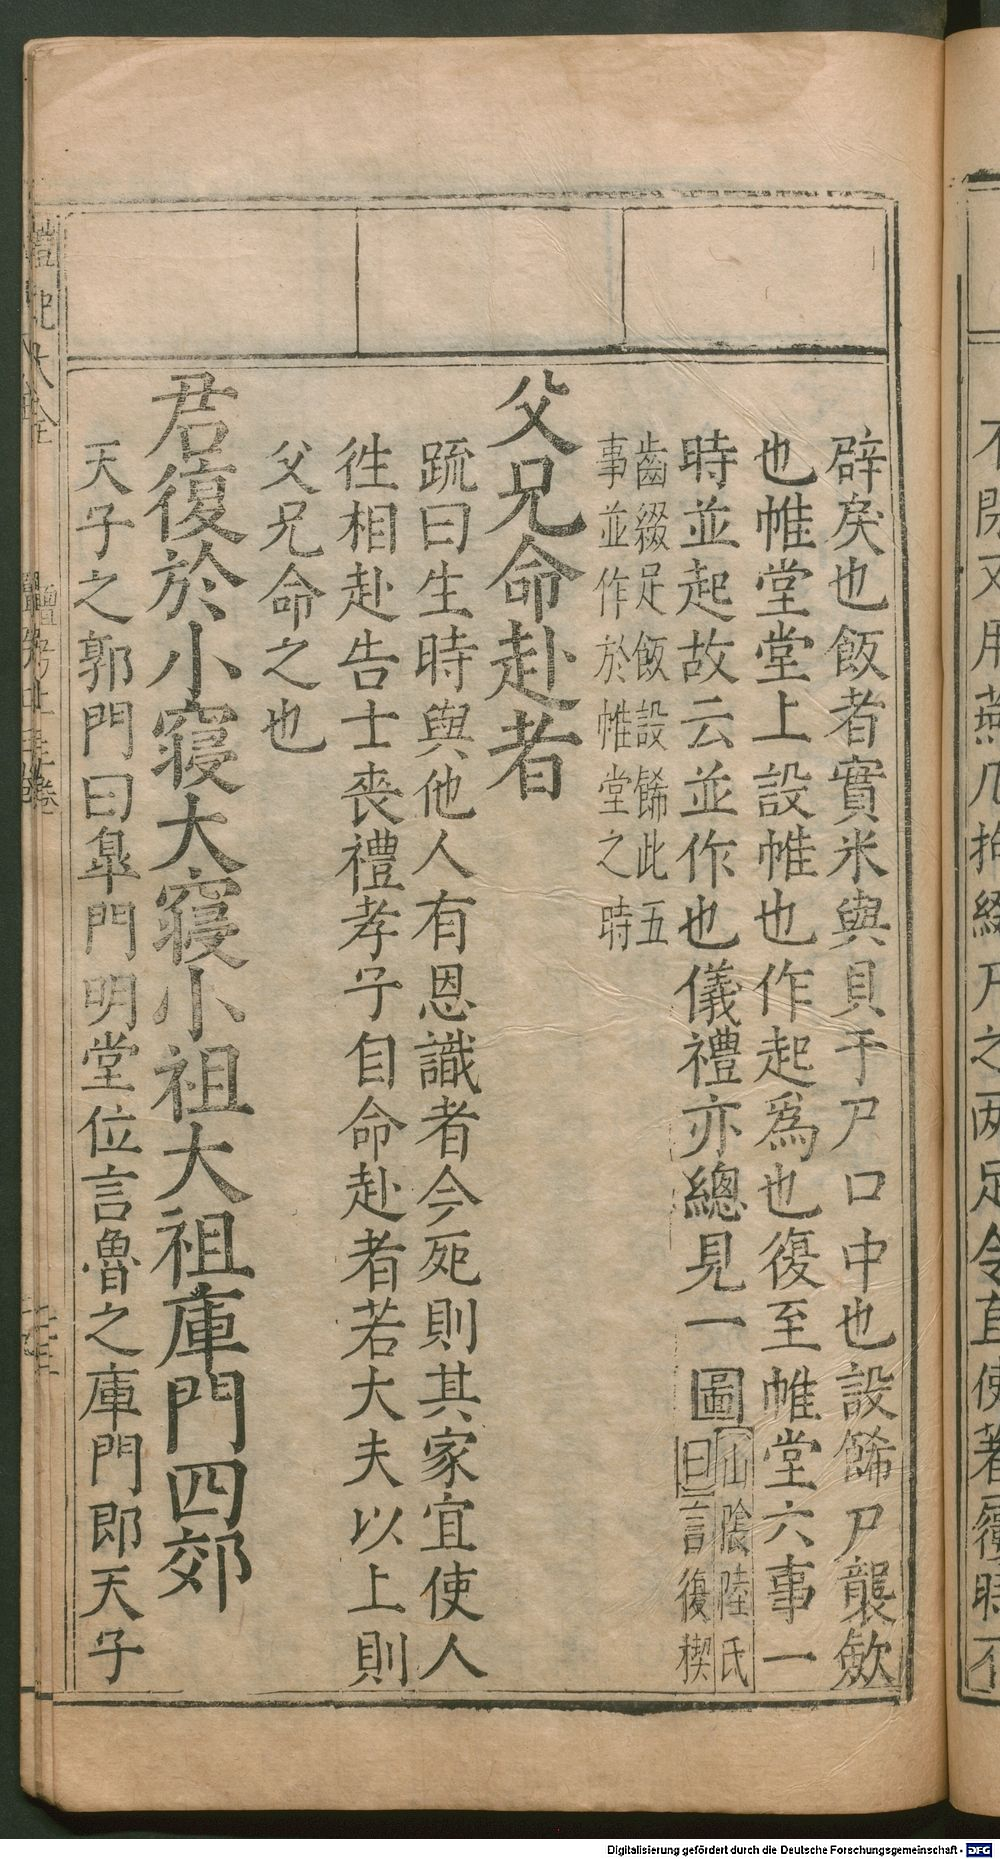 辟戾也飯者實米與貝于尸口中也設飾尸襲斂
也帷堂堂上設帷也作起爲也復至帷堂六事一
時並起故云並作也儀禮亦總見一圖山隂陸氏
曰言復楔
齒綴足飯設飾此五
事並作於帷堂之時
父兄命赴者
疏曰生時與他人有恩識者今死則其家宜使人
徃相赴告士喪禮孝子自命赴者若大夫以上則
父兄命之也
君復於小寢大寢小祖大祖庫門四郊
天子之郭門曰皐門明堂位言魯之庫門即天子
Digitalisierung gefördert durch die Deutsche Forschungsgemeinschaft - DFG